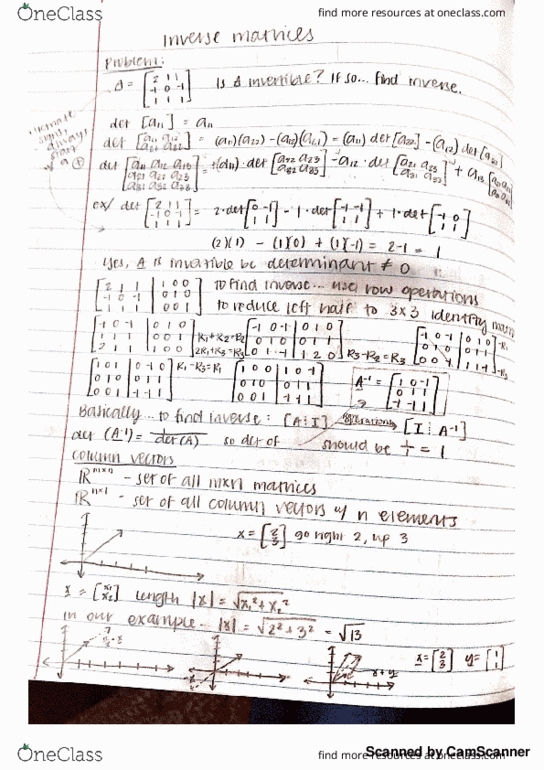 OneClass
find more resources at oneclass.com
Inverse matrices
Problem:
A = [2 1 1; -1 0 -1; 1 1 1] Is A invertible? If so... find inverse.
always
start
det [a11] = a11
det [a11 a12; a21 a22] = (a11)(a22)-(a12)(a21) = (a11) det [a22] - (a12) det [a21]
det [a11 a12 a13; a21 a22 a23; a31 a32 a33] = +(a11) · det [a22 a23; a32 a33] - a12 · det [a21 a23; a31 a33] + a13
ex/ det [2 1 1; -1 0 -1; 1 1 1] = 2·det [0 -1; 1 1] - 1·det [-1 -1; 1 1] + 1·det [-1 0; 1 1]
(2)(1) - (1)(0) + (1)(-1) = 2-1 = 1
Yes, A is invertible bc determinant ≠ 0
[2 1 1 | 1 0 0; -1 0 -1 | 0 1 0; 1 1 1 | 0 0 1] to find inverse... use row operations
to reduce left half to 3x3 identity
[-1 0 -1 | 0 1 0; 1 1 1 | 0 0 1; 2 1 1 | 1 0 0] R1+R2=R2 2R1+R3=R3 [-1 0 -1 | 0 1 0; 0 1 0 | 0 1 1; 0 1 -1 | 1 2 0] R3-R2=R3
[1 0 1 | 0 -1 0; 0 1 0 | 0 1 1; 0 0 1 | -1 -1 1] R1-R3=R1 [1 0 0 | 1 0 -1; 0 1 0 | 0 1 1; 0 0 1 | -1 -1 1] A⁻¹ = [1 0 -1; 0 1 1; -1 -1 1]
Basically... to find inverse: [A | I] operations [I | A⁻¹]
det (A⁻¹) = 1/det(A) so det of should be 1/1 = 1
column vectors
ℝ^mxn - set of all mxn matrices
ℝ^nx1 - set of all column vectors w/ n elements
x = [2; 3] go right 2, up 3
x = [x1; x2] length |x| = √x1² + x2²
in our example.. |x| = √2² + 3² = √13
x+y
x = [2; 3] y = [1; 1]
OneClass
find more resources at oneclass.com
Scanned by CamScanner